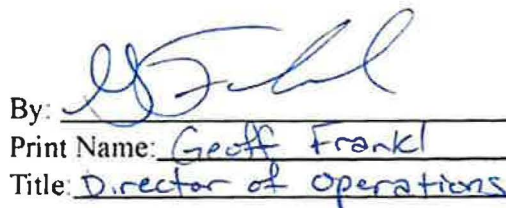 By:
Print Name: Geoff Frankl
Title: Director of Operations